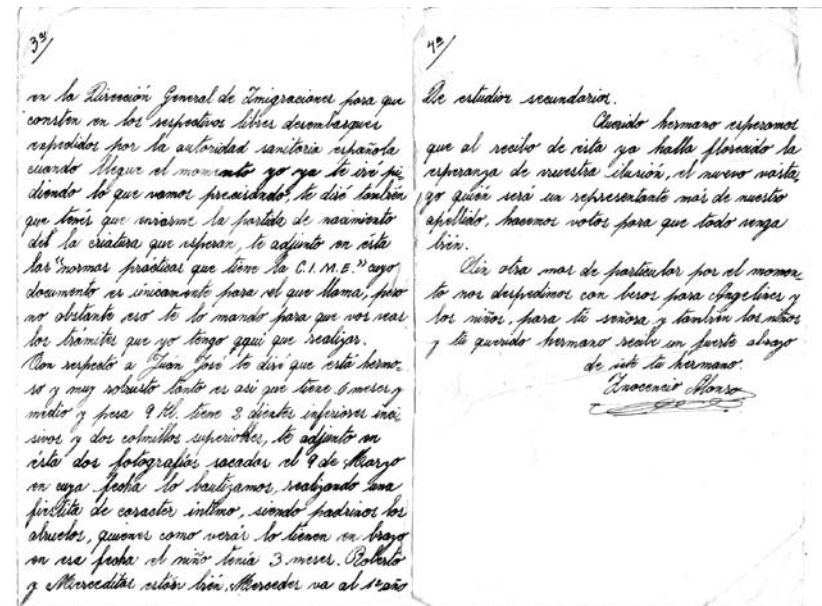 3ª/
en la Dirección General de Imigraciones para que
consten en los respectivos libres desembarques
expedidos por la autoridad sanitaria española
cuando llegue el momento yo ya te iré pi-
diendo lo que vamos precisando, te diré también
que tenés que enviarme la partida de nacimiento
del la criatura que esperan, te adjunto en ésta
las "normas prácticas que tiene la C.I.M.E." cuyo
documento es únicamente para el que llama, pero
no obstante eso te lo mando para que vos veas
los tramites que yo tengo aqui que realizar.
Con respecto a Juán José te diré que está hermo-
so y muy robusto tanto es asi que tiene 6 meses y
medio y pesa 9 Kl. tiene 2 dientes inferiores inci
sivos y dos colmillos superiores, te adjunto en
ésta dos fotografías sacadas el 9 de Marzo
en cuya fecha lo bautizamos, realizando una
fiestita de caracter intimo, siendo padrinos los
abuelos, quienes como verás lo tienen en brazo
en esa fecha el niño tenía 3 meses. Roberto
y Merceditas están bién, Mercedes va al 1º año
4ª/
De estudios secundarios.
Querido hermano esperamos
que al recibo de ésta ya halla florecido la
esperanza de vuestra ilusión, el nuevo vásta-
go quién será un representante más de nuestro
apellido, hacemos votos para que todo venga
bién.
Sin otra mas de particular por el momen-
to nos despedimos con besos para Angelines y
los niños, para tú señora, y también los niños
y tú querido hermano recibe un fuerte abrazo
de éste tu hermano.
Inocencio Alonso